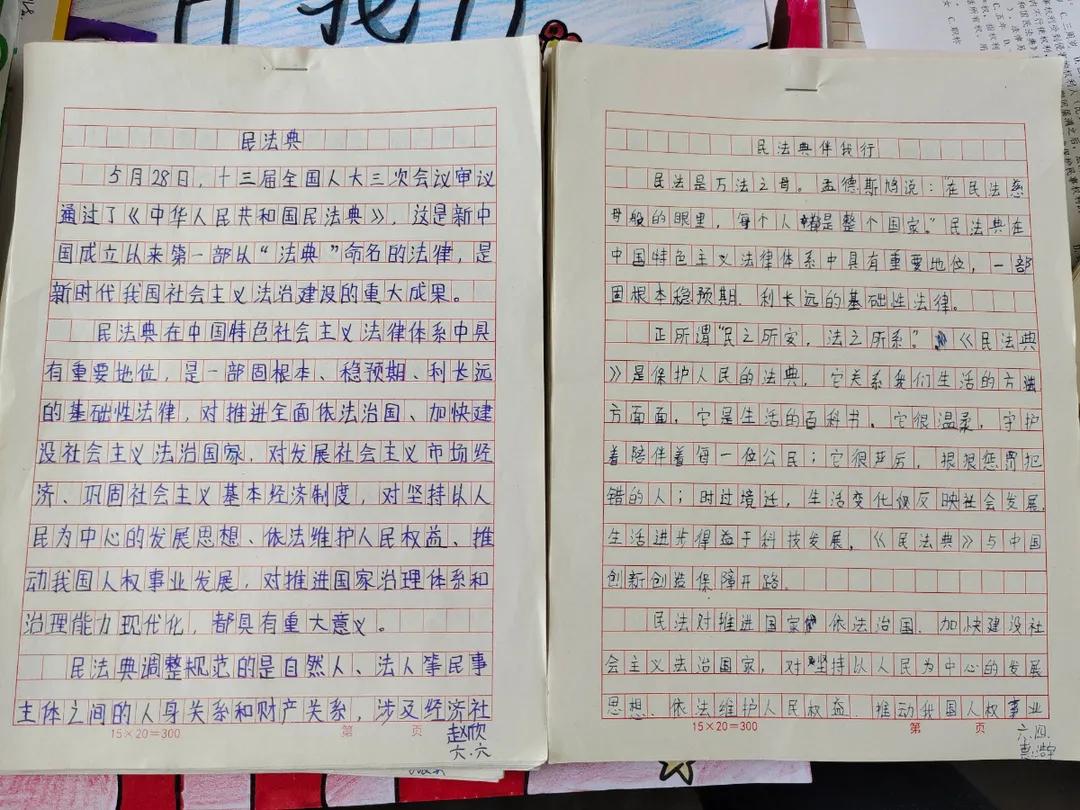 民法典
5月28日，十三届全国人大三次会议审议
通过了《中华人民共和国民法典》，这是新中
国成立以来第一部以“法典”命名的法律，是
新时代我国社会主义法治建设的重大成果。
民法典在中国特色社会主义法律体系中具
有重要地位，是一部固根本、稳预期、利长远
的基础性法律，对推进全面依法治国、加快建
设社会主义法治国家，对发展社会主义市场经
济、巩固社会主义基本经济制度，对坚持以人
民为中心的发展思想、依法维护人民权益、推
动我国人权事业发展，对推进国家治理体系和
治理能力现代化，都具有重大意义。
民法典调整规范的是自然人、法人等民事
主体之间的人身关系和财产关系，涉及经济社
15×20=300
第 页
赵欣
六.六
民法典伴我行
民法是万法之母。孟德斯鸠说：“在民法慈
母般的眼里，每个人都是整个国家。”民法典在
中国特色主义法律体系中具有重要地位，一部
固根本稳预期、利长远的基础性法律。
正所谓“民之所安，法之所系。”《民法典
》是保护人民的法典，它关系我们生活的方
方面面，它是生活的百科书。它很温柔，守护
着陪伴着每一位公民；它很严厉，狠狠惩罚犯
错的人；时过境迁，生活变化仅反映社会发展，
生活进步得益于科技发展，《民法典》与中国
创新创造保障开路。
民法对推进国家依法治国、加快建设社
会主义法治国家，对坚持以人民为中心的发展
思想、依法维护人民权益、推动我国人权事业
15×20=300
第 页
六.四.